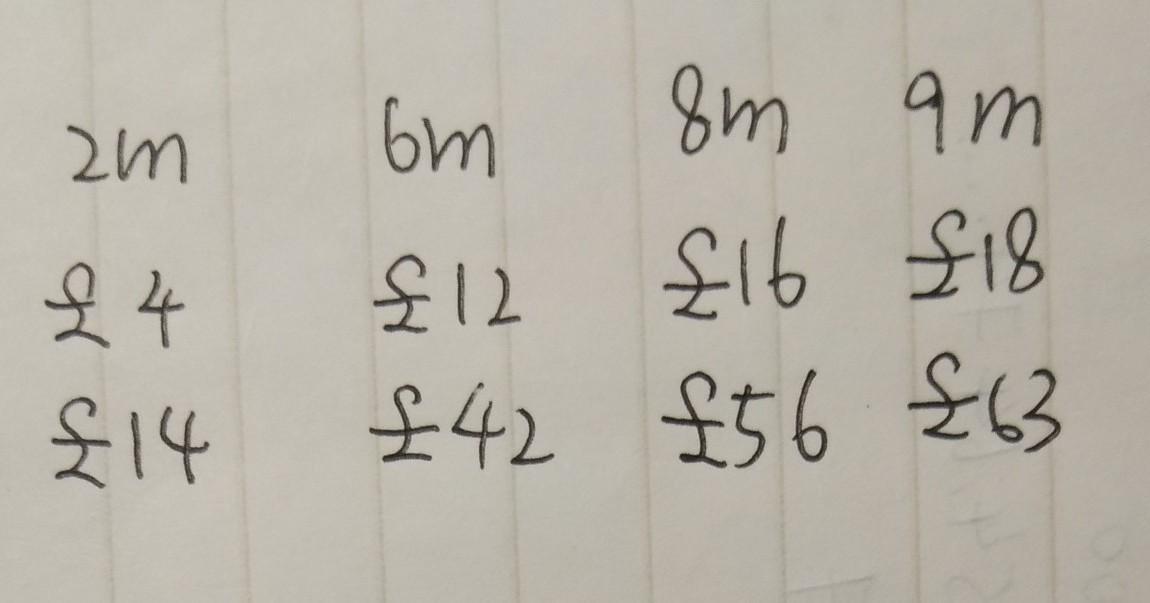 2m 6m 8m 9m
£4 £12 £16 £18
£14 £42 £56 £63